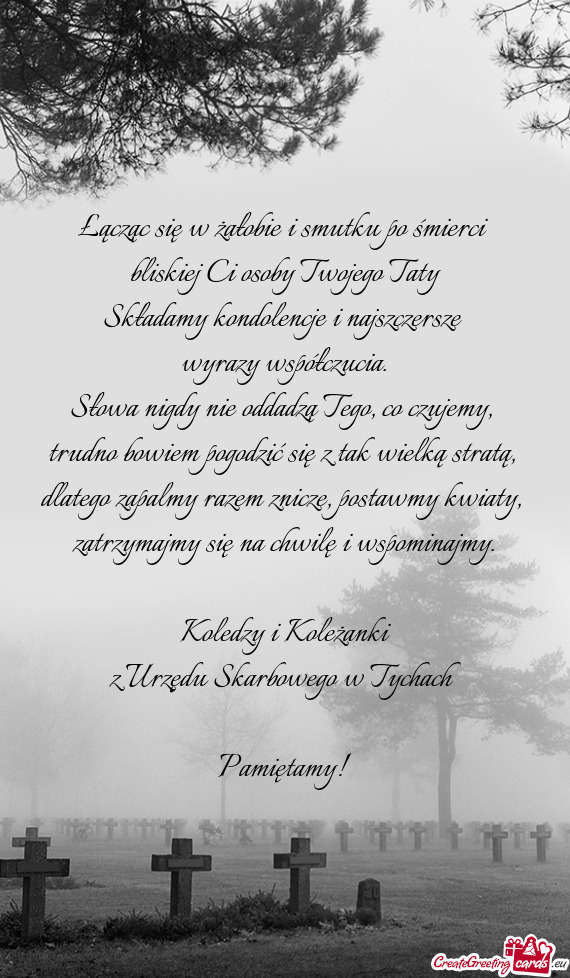 Łącząc się w żałobie i smutku po śmierci
bliskiej Ci osoby Twojego Taty
Składamy kondolencje i najszczersze
wyrazy współczucia.
Słowa nigdy nie oddadzą Tego, co czujemy,
trudno bowiem pogodzić się z tak wielką stratą,
dlatego zapalmy razem znicze, postawmy kwiaty,
zatrzymajmy się na chwilę i wspominajmy.
Koledzy i Koleżanki
z Urzędu Skarbowego w Tychach
Pamiętamy!
CreateGreetingcards.eu